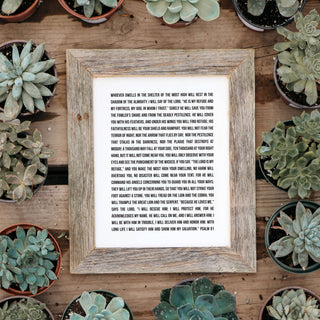 WHOEVER DWELLS IN THE SHELTER OF THE MOST HIGH WILL REST IN THE
SHADOW OF THE ALMIGHTY. I WILL SAY OF THE LORD, "HE IS MY REFUGE AND
MY FORTRESS, MY GOD, IN WHOM I TRUST." SURELY HE WILL SAVE YOU FROM
THE FOWLER'S SNARE AND FROM THE DEADLY PESTILENCE. HE WILL COVER
YOU WITH HIS FEATHERS, AND UNDER HIS WINGS YOU WILL FIND REFUGE; HIS
FAITHFULNESS WILL BE YOUR SHIELD AND RAMPART. YOU WILL NOT FEAR THE
TERROR OF NIGHT, NOR THE ARROW THAT FLIES BY DAY, NOR THE PESTILENCE
THAT STALKS IN THE DARKNESS, NOR THE PLAGUE THAT DESTROYS AT
MIDDAY. A THOUSAND MAY FALL AT YOUR SIDE, TEN THOUSAND AT YOUR RIGHT
HAND, BUT IT WILL NOT COME NEAR YOU. YOU WILL ONLY OBSERVE WITH YOUR
EYES AND SEE THE PUNISHMENT OF THE WICKED. IF YOU SAY, "THE LORD IS MY
REFUGE," AND YOU MAKE THE MOST HIGH YOUR DWELLING, NO HARM WILL
OVERTAKE YOU, NO DISASTER WILL COME NEAR YOUR TENT. FOR HE WILL
COMMAND HIS ANGELS CONCERNING YOU TO GUARD YOU IN ALL YOUR WAYS;
THEY WILL LIFT YOU UP IN THEIR HANDS, SO THAT YOU WILL NOT STRIKE YOUR
FOOT AGAINST A STONE. YOU WILL TREAD ON THE LION AND THE COBRA; YOU
WILL TRAMPLE THE GREAT LION AND THE SERPENT. "BECAUSE HE LOVES ME,"
SAYS THE LORD, "I WILL RESCUE HIM; I WILL PROTECT HIM, FOR HE
ACKNOWLEDGES MY NAME. HE WILL CALL ON ME, AND I WILL ANSWER HIM; I
WILL BE WITH HIM IN TROUBLE, I WILL DELIVER HIM AND HONOR HIM. WITH
LONG LIFE I WILL SATISFY HIM AND SHOW HIM MY SALVATION." PSALM 91